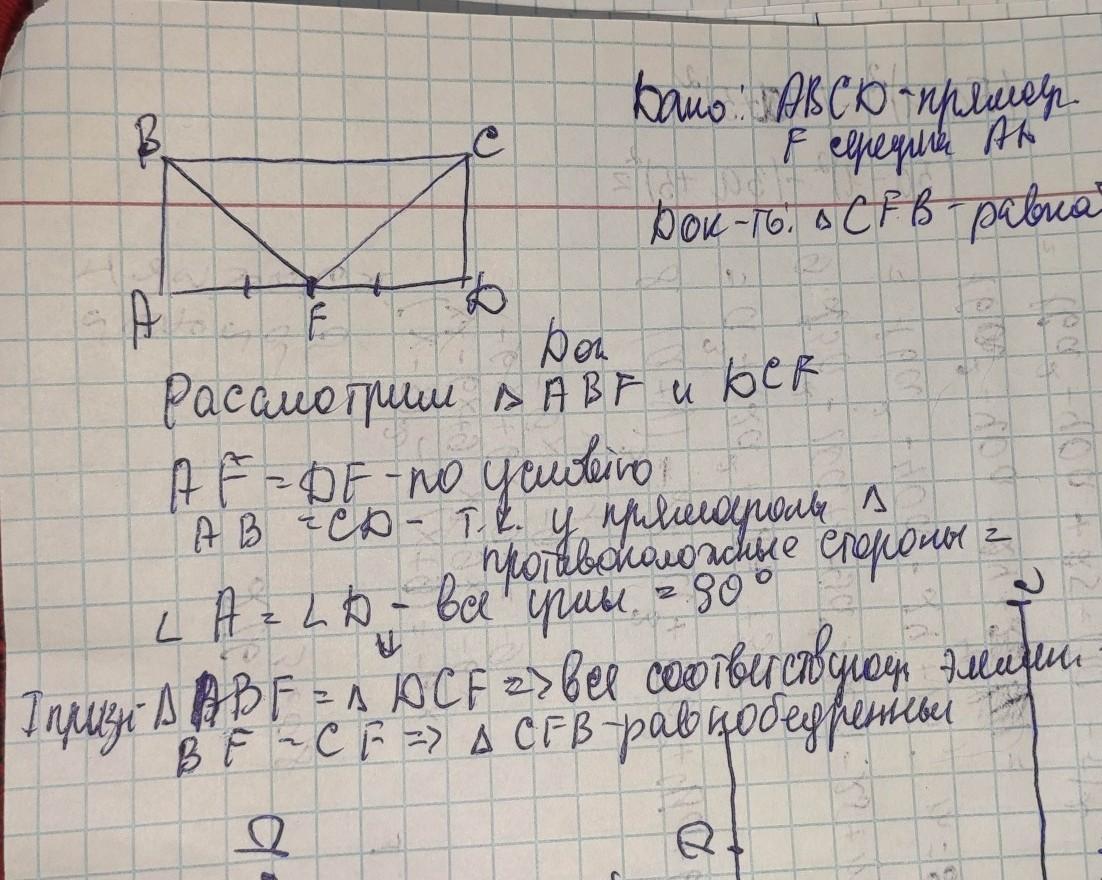 Дано: ABCD - прямоуг.
F середина AD
Док-ть: △ CFB - равно
B
C
A
F
D
Док
Рассмотрим △ ABF и DCF
AF = DF - по условию
AB = CD - т.к. у
противоположные стороны =
∠ A = ∠ D - все углы = 90°
I призн △ ABF = △ DCF => все соответствующ элемен
BF = CF => △ CFB - равнобедренный